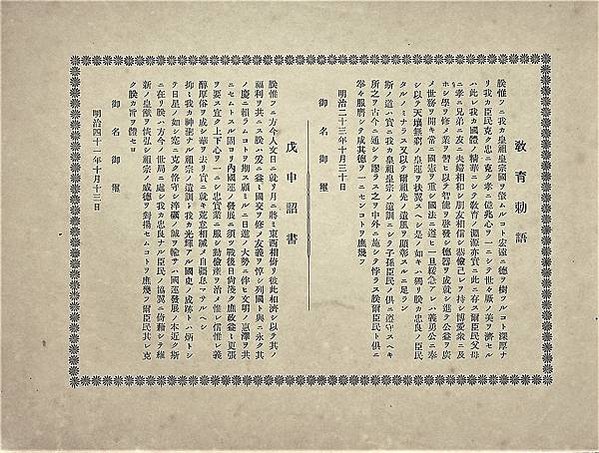 教育勅語
朕惟フニ我カ皇祖皇宗國ヲ肇ムルコト宏遠ニ德ヲ樹ツルコト深厚ナ
リ我カ臣民克ク忠ニ克ク孝ニ億兆心ヲ一ニシテ世々厥ノ美ヲ濟セル
ハ此レ我カ國體ノ精華ニシテ教育ノ淵源亦實ニ此ニ存ス爾臣民父母
ニ孝ニ兄弟ニ友ニ夫婦相和シ朋友相信シ恭儉己レヲ持シ博愛衆ニ及
ホシ學ヲ修メ業ヲ習ヒ以テ智能ヲ啓發シ德器ヲ成就シ進テ公益ヲ廣
メ世務ヲ開キ常ニ國憲ヲ重シ國法ニ遵ヒ一旦緩急アレハ義勇公ニ奉
シ以テ天壤無窮ノ皇運ヲ扶翼スヘシ是ノ如キハ獨リ朕カ忠良ノ臣民
タルノミナラス又以テ爾祖先ノ遺風ヲ顯彰スルニ足ラン
斯ノ道ハ實ニ我カ皇祖皇宗ノ遺訓ニシテ子孫臣民ノ俱ニ遵守スヘキ
所之ヲ古今ニ通シテ謬ラス之ヲ中外ニ施シテ悖ラス朕爾臣民ト俱ニ
拳々服膺シテ咸其德ヲ一ニセンコトヲ庶幾フ
明治二十三年十月三十日
御名御璽
戊申詔書
朕惟フニ方今人文日ニ就リ月ニ將ミ東西相倚リ彼此相濟シ以テ其ノ
福利ヲ共ニス朕ハ爰ニ益々國交ヲ修メ友義ヲ惇シ列國ト與ニ永ク其
ノ慶ニ賴ラムコトヲ期ス顧ミルニ日進ノ大勢ニ伴ヒ文明ノ惠澤ヲ共
ニセムトスル固ヨリ內國運ノ發展ニ須ツ戰後日尙淺ク庶政益々更張
ヲ要ス宜ク上下心ヲ一ニシ忠實業ニ服シ勤儉產ヲ治メ惟レ信惟レ義
醇厚俗ヲ成シ華ヲ去リ實ニ就キ荒怠相誡メ自彊息マサルヘシ
抑々我カ神聖ナル祖宗ノ遺訓ト我カ光輝アル國史ノ成跡トハ炳トシ
テ日星ノ如シ寔ニ克ク恪守シ淬礪ノ誠ヲ輸サハ國運發展ノ本近ク斯
ニ在リ朕ハ方今ノ世局ニ處シ我カ忠良ナル臣民ノ協翼ニ倚藉シテ維
新ノ皇猷ヲ恢弘シ祖宗ノ威德ヲ對揚セムコトヲ庶幾フ爾臣民其レ克
ク朕カ旨ヲ體セヨ
御名御璽
明治四十一年十月十三日